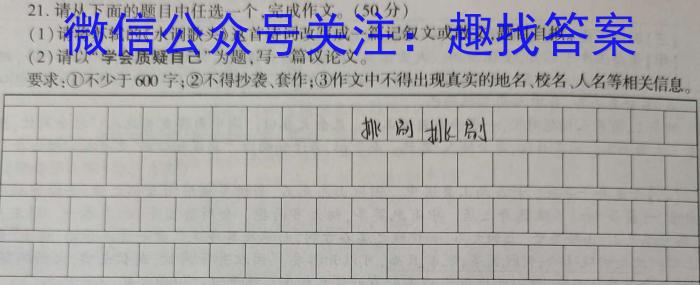 21. 请从下面的题目中任选一个,完成作文。(50分)
微信公众号关注：趣找答案
(2)请以“学会质疑自己”为题,写一篇议论文。
要求:①不少于600字;②不得抄袭、套作;③作文中不得出现真实的地名、校名、人名等相关信息。
挑剔挑剔